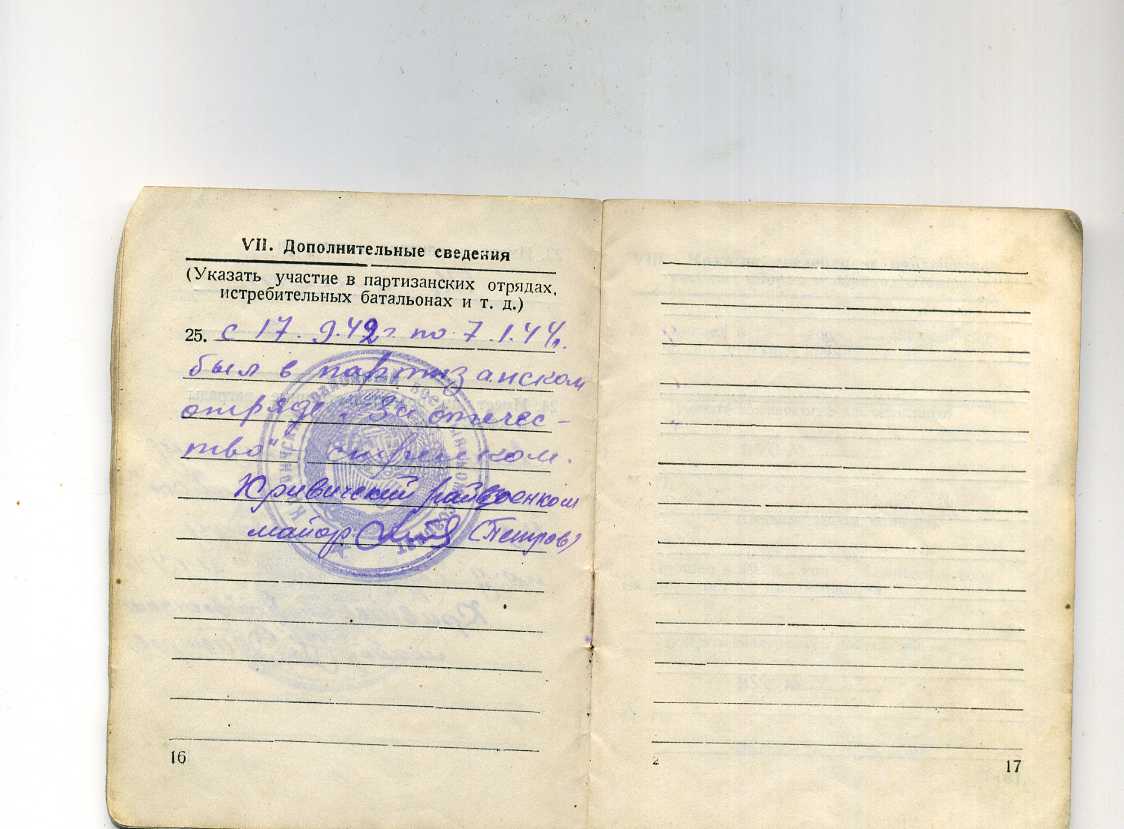 VII. Дополнительные сведения
(Указать участие в партизанских отрядах,
истребительных батальонах и т. д.)
25. с 17.9.42 г по 7.1.44г.
был в партизанском
отряде „За отечес-
тво" стрелком.
Кривичский райвоенком
майор (Петров)
16
2
17